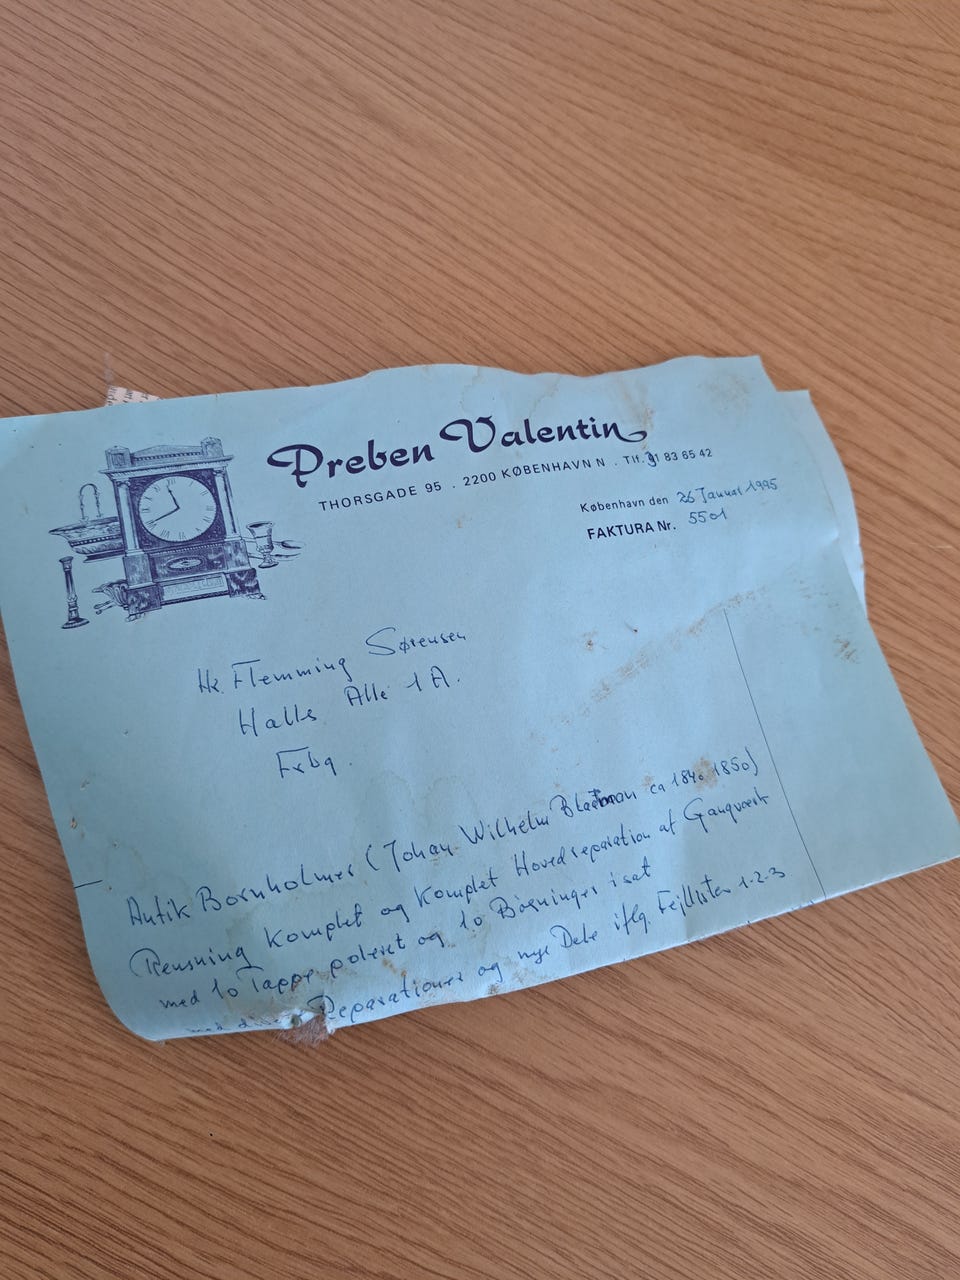 Preben Valentin
THORSGADE 95 . 2200 KØBENHAVN N . Tlf. 31 83 65 42
København den 26 Januar 1995
FAKTURA Nr. 5501
Hr. Flemming Sørensen
Halls Alle 1 A.
Frbg.
Antik Bornholmer (Johan Wilhelm ca 1840 1850)
Rensning Komplet og Komplet Hovedreparation af Gangværk
med 10 Tappe poleret og 10 Bøsninger isat
med Reparationer og nye Dele iflg. Fejllister 1-2-3